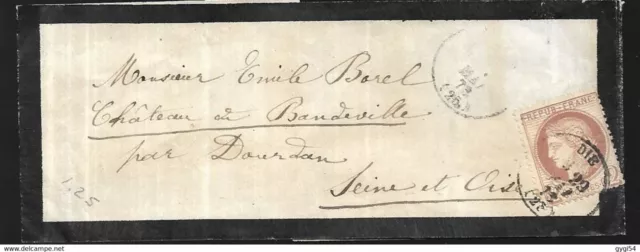 Monsieur Emile Borel
Château de Bandeville
par Dourdan
Seine et Oise
MAI
73
REPUB·FRANC
DIE
20
1.25
delcampe.net
gygi54